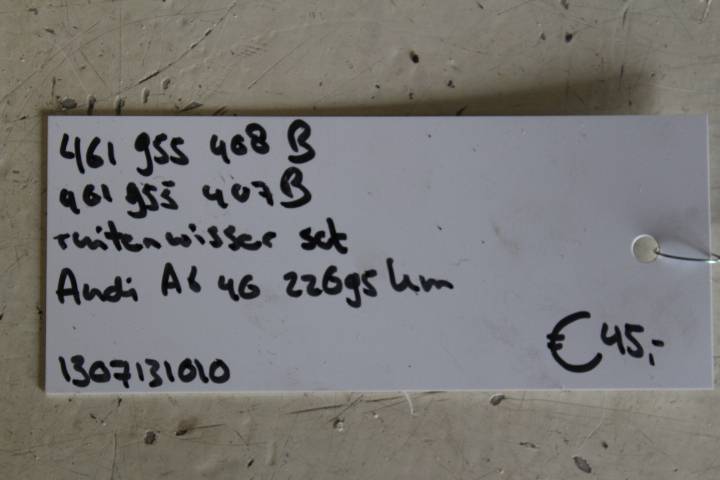 4G1 955 408 B
4G1 955 407 B
ruitenwisser set
Audi A6 4G 22695 km
€45,-
1307131010